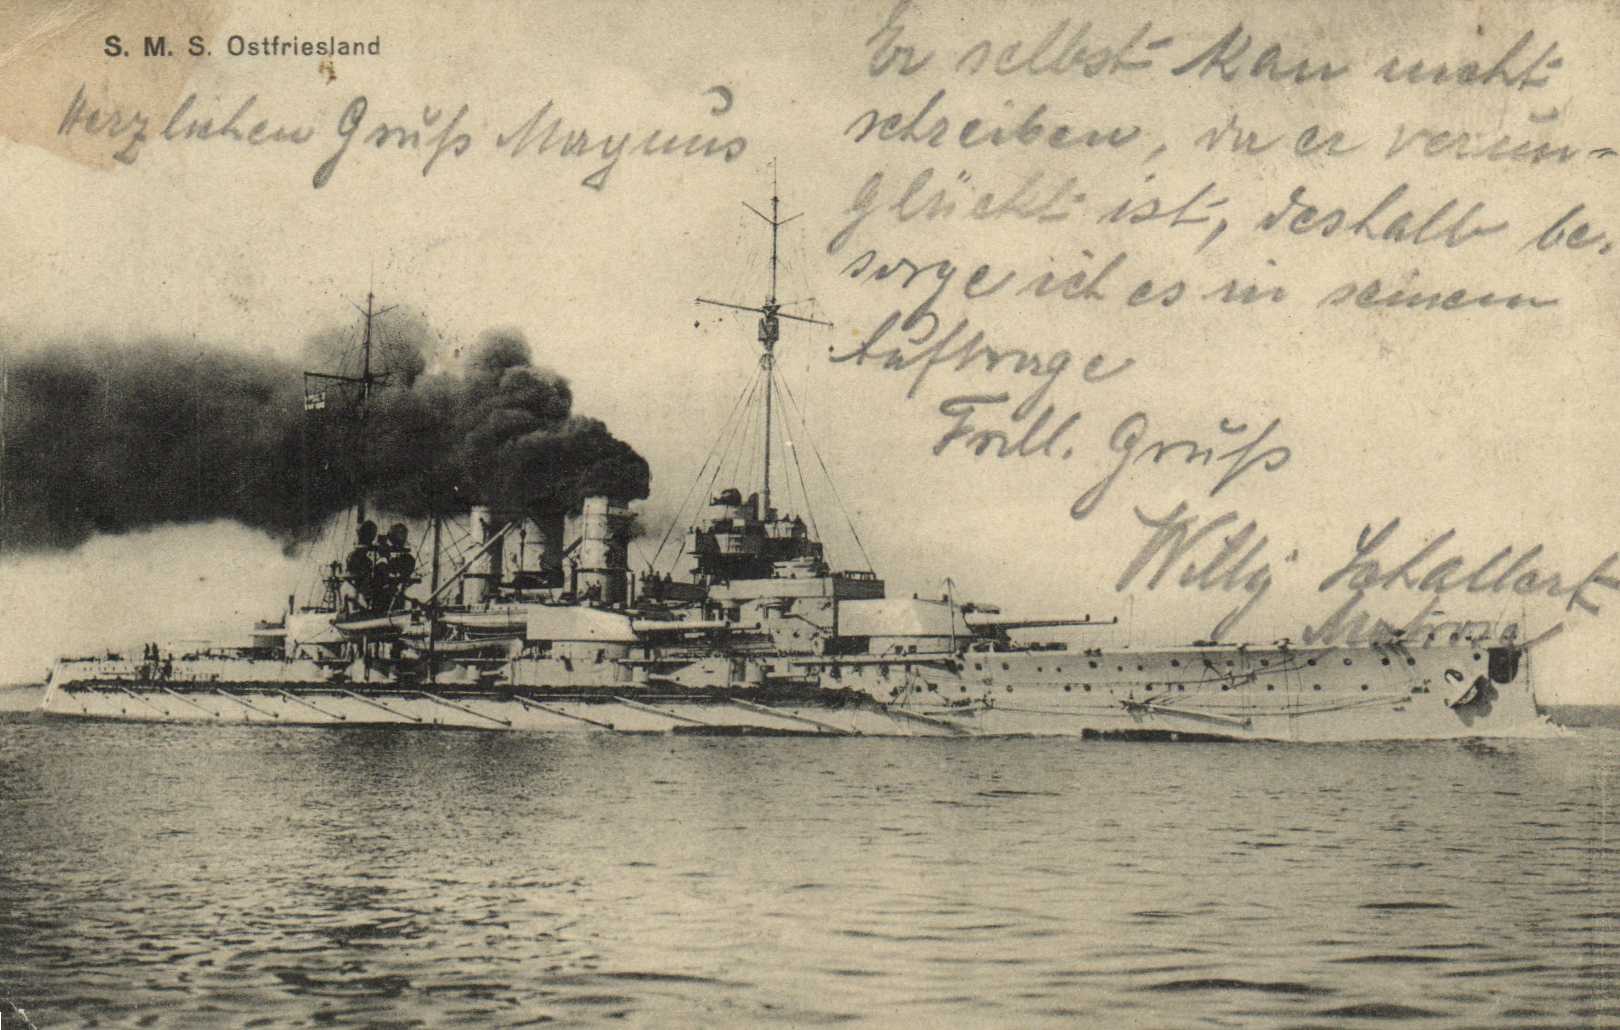 S. M. S. Ostfriesland
Herzlichen Gruß Magnus
Er selbst kan nicht
schreiben, da er verun=
glückt ist, deshalb be-
sorge ich es in seinem
Auftrage
Frdl. Gruß
Willy Schallert
Matrose